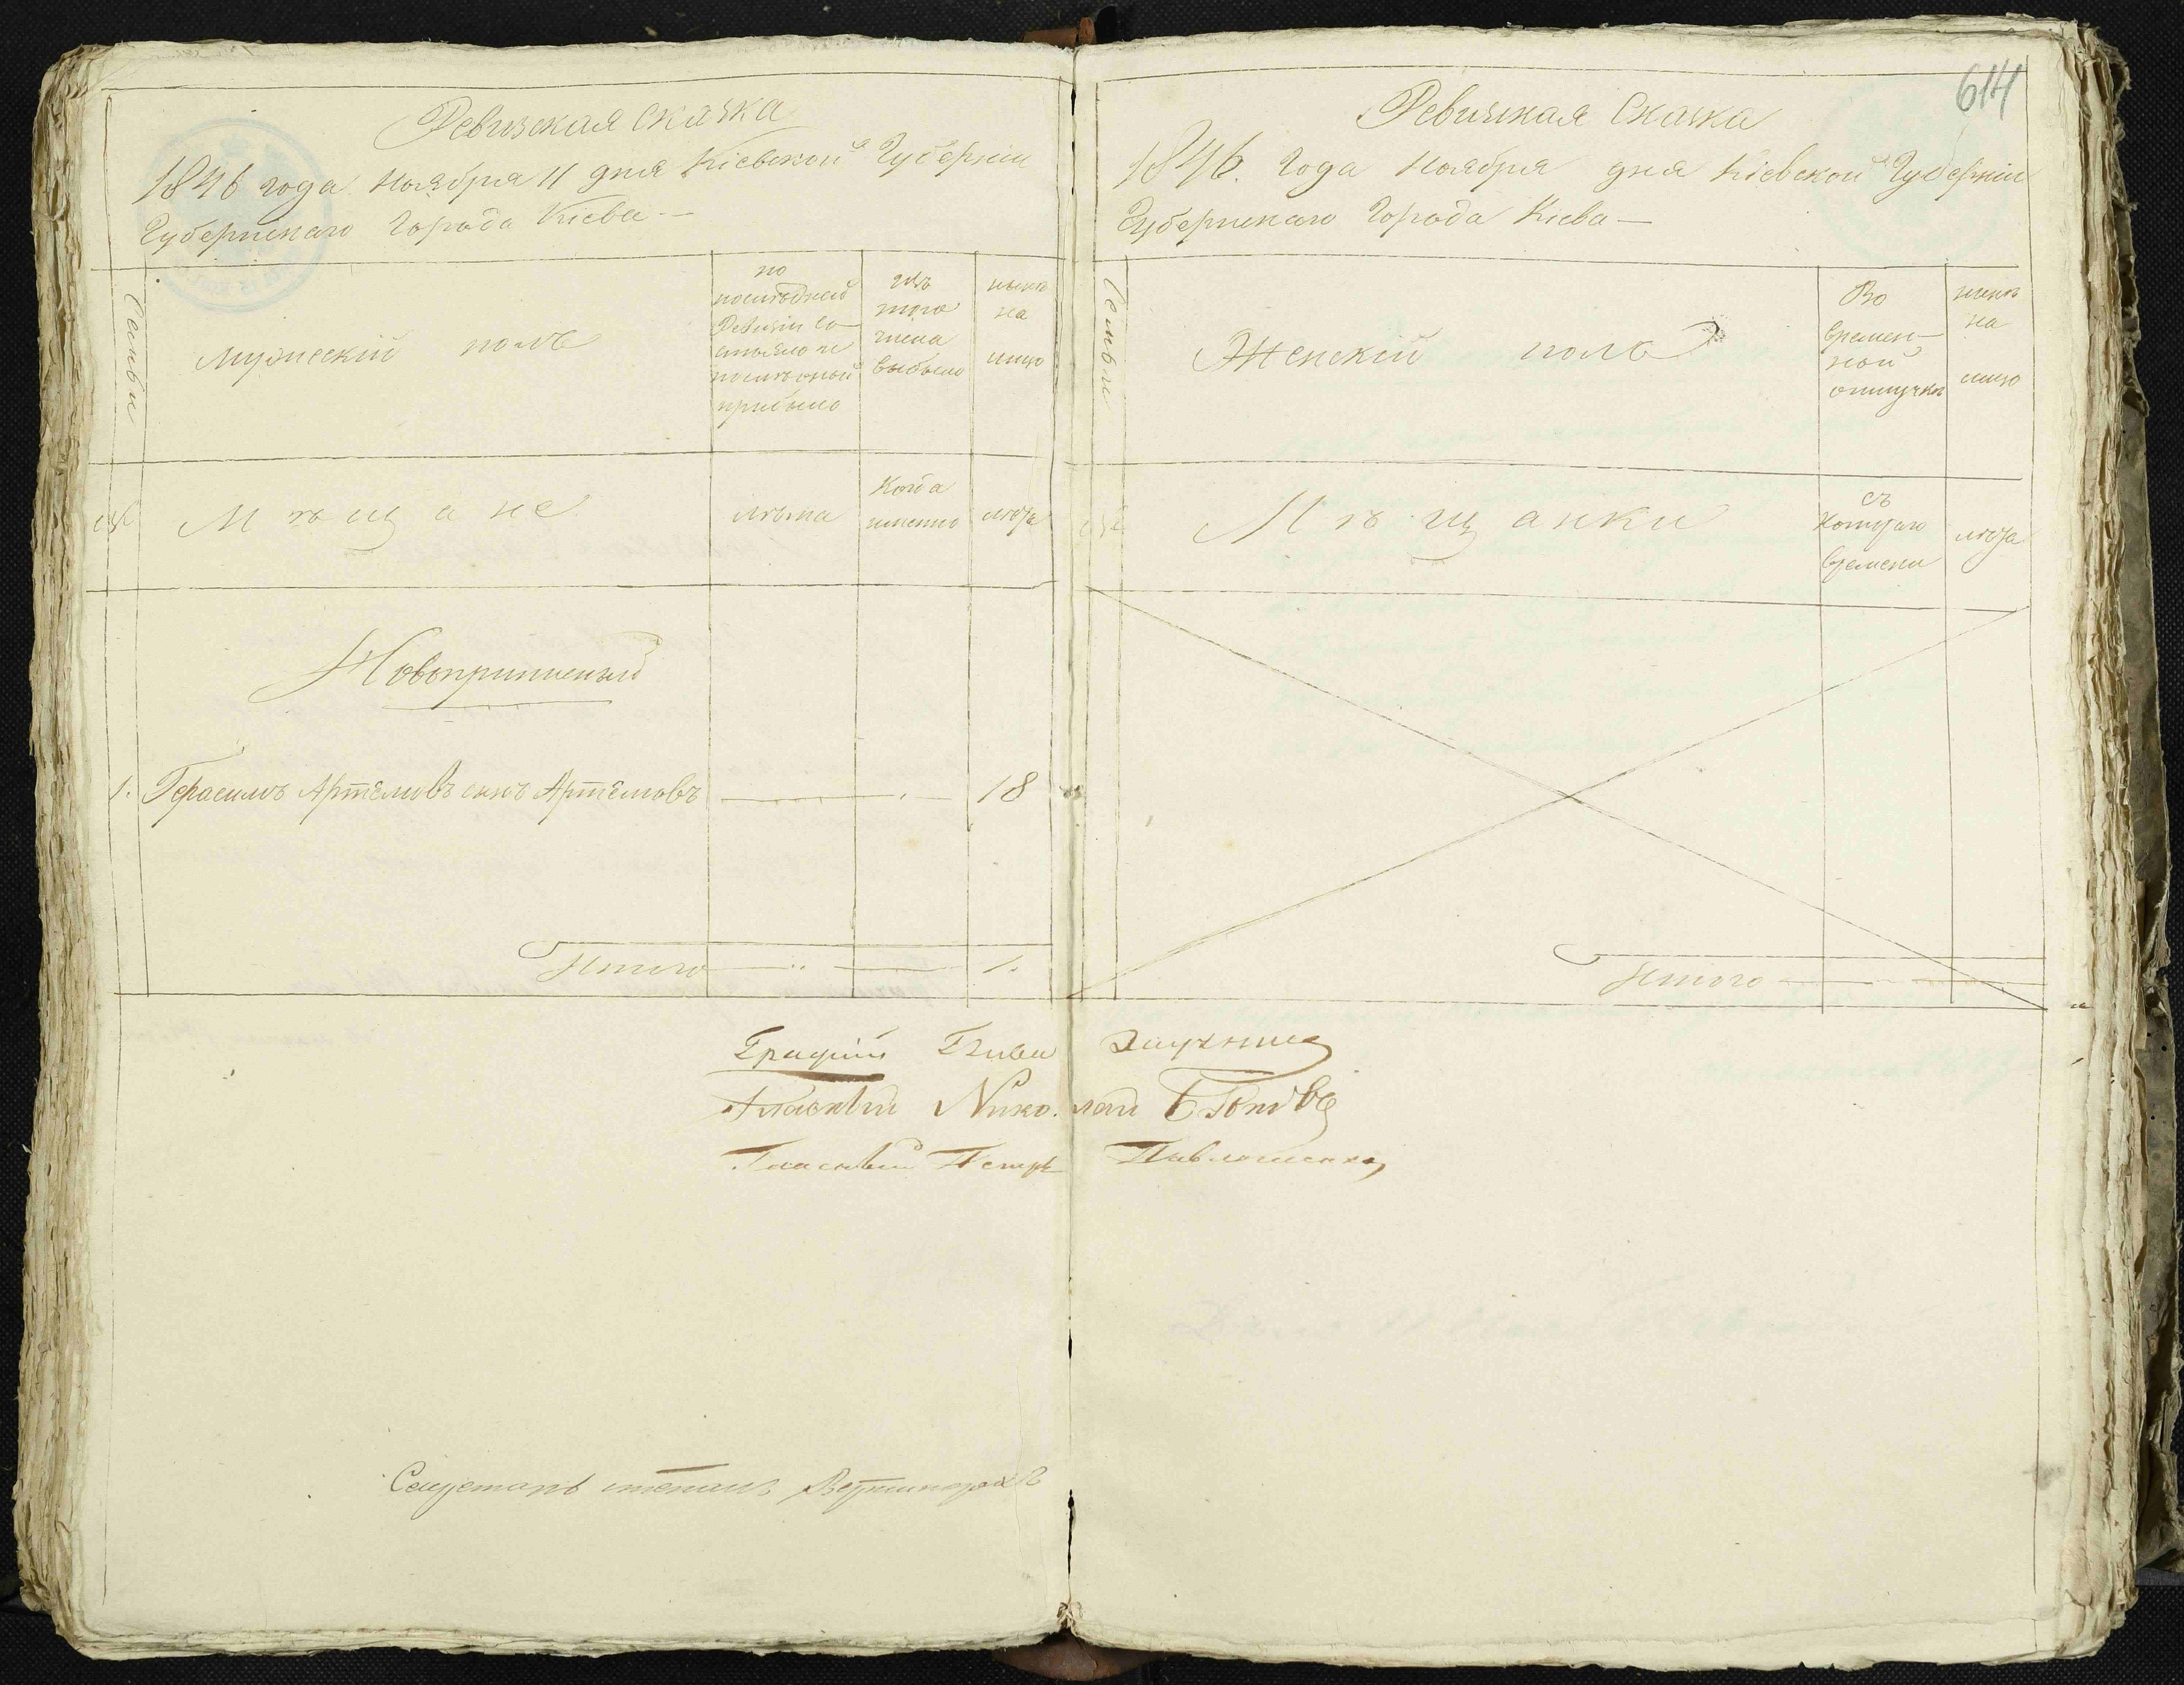 Ревизская сказка
1846 года ноября 11 дня Кіевской Губерніи
Губернскаго Города Кіева —
Семьи
Мужескій полъ
по
последней
Ревизіи со-
стояло и
после оной
прибыло
изъ
того
числа
выбыло
ныне
на
лицо
№
Мѣщане
лѣта
Когда
именно
лѣта
Новопришлый
1. Герасимъ Артемовъ сынъ Артемовъ 18
Итого 1.
614
Ревизская Сказка
1846. Года Ноября дня Кіевской Губерніи
Губернскаго Города Кіева —
Семьи
Женскій полъ
Во
времен-
ной
отлучкѣ
ныне
на
лицо
Мѣщанки
съ
Котораго
времени
лѣта
Итого
Гласный Николай
Гласный Петръ Павлошенко
Секретарь